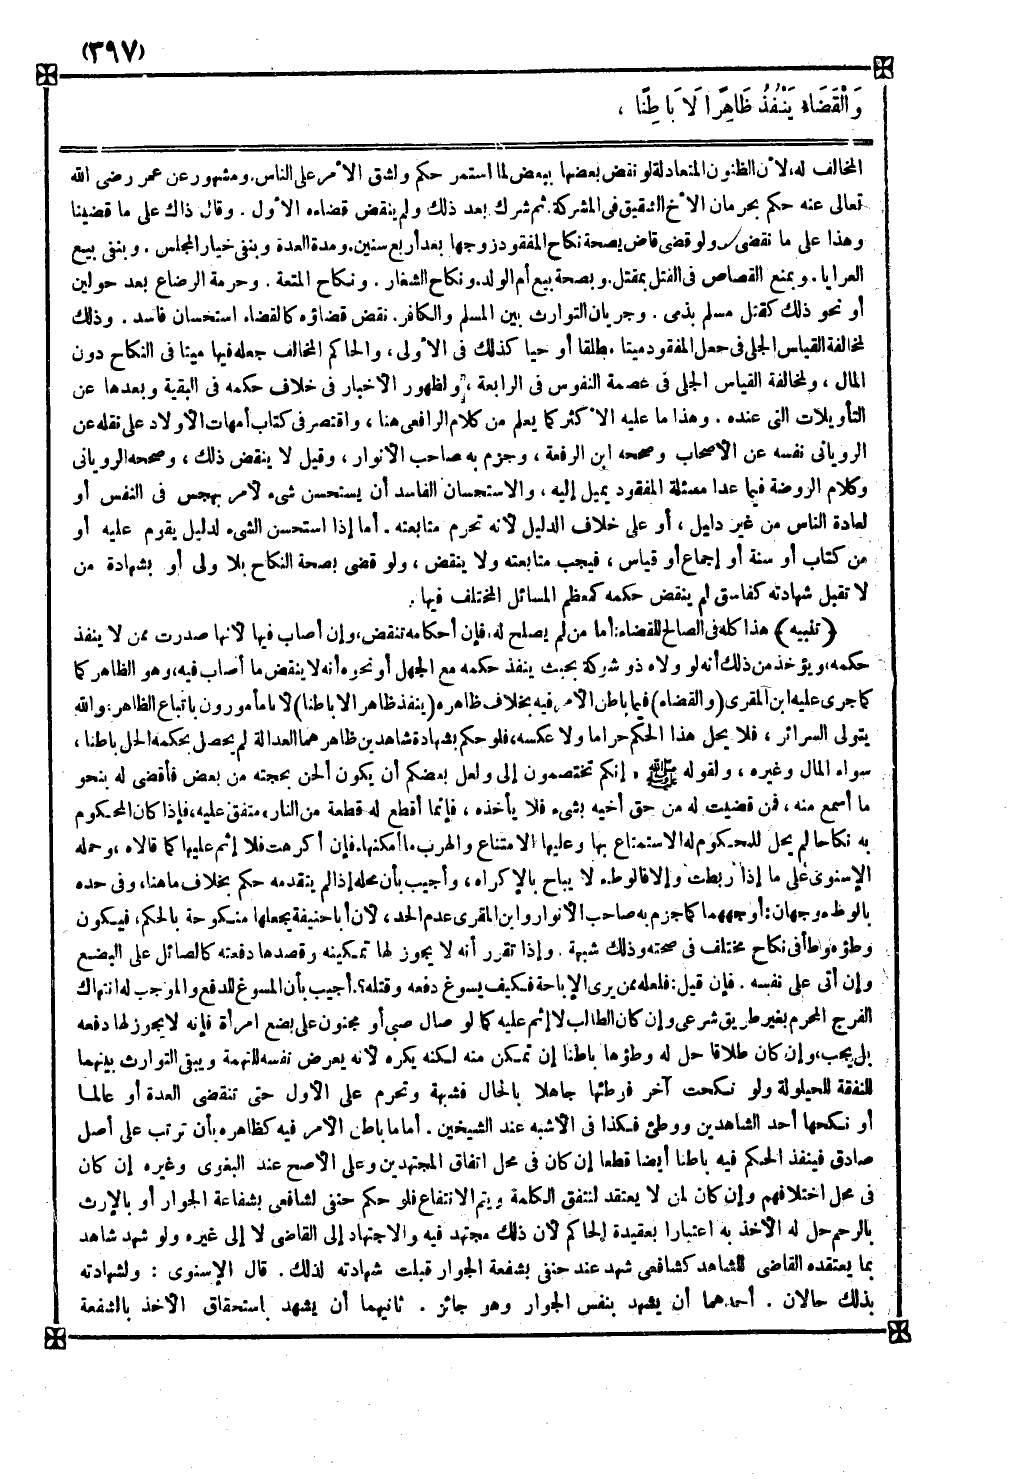 (٣٩٧)
وَالْقَضَاءُ يَنْفُذُ ظَاهِرًا لَا بَاطِنًا ،
المخالف له، لأن الظنون المتعادلة لو نقض بعضها ببعض لما استمر حكم ولشق الأمر على الناس. ومشهور عن عمر رضى الله
تعالى عنه حكم بحرمان الأخ الشقيق فى المشركة. ثم شرك بعد ذلك ولم ينقض قضاءه الأول . وقال ذاك على ما قضينا
وهذا على ما نقضى، ولو قضى قاض بصحة نكاح المفقود زوجها بعد أربع سنين. ومدة العدة وبنفى خيار المجلس . وبنفى بيع
العرايا . وبمنع القصاص فى القتل بمثقل. وبصحة بيع أم الولد. ونكاح الشغار . ونكاح المتعة . وحرمة الرضاع بعد حولين
أو نحو ذلك كقتل مسلم بذمى . وجريان التوارث بين المسلم والكافر. نقض قضاؤه كالقضاء استحسان فاسد . وذلك
لمخالفة القياس الجلى فى جعل المفقود ميتا مطلقا أو حيا كذلك فى الأولى، والحاكم المخالف جعله فيها ميتا فى النكاح دون
المال ، ولمخالفة القياس الجلى فى عصمة النفوس فى الرابعة ، ولظهور الأخبار فى خلاف حكمه فى البقية وبعدها عن
التأويلات التى عنده . وهذا ما عليه الأكثر كما يعلم من كلام الرافعى هنا ، واقتصر فى كتاب أمهات الأولاد على نقله عن
الرويانى نفسه عن الأصحاب وصححه ابن الرفعة ، وجزم به صاحب الأنوار ، وقيل لا ينقض ذلك ، وصححه الرويانى
وكلام الروضة فيما عدا مسئلة المفقود يميل إليه ، والاستحسان الفاسد أن يستحسن شىء لأمر يهجس فى النفس أو
لعادة الناس من غير دليل ، أو على خلاف الدليل لأنه تحرم متابعته . أما إذا استحسن الشىء لدليل يقوم عليه أو
من كتاب أو سنة أو إجماع أو قياس ، فيجب متابعته ولا ينقض ، ولو قضى بصحة النكاح بلا ولى أو بشهادة من
لا تقبل شهادته كفاسق لم ينقض حكمه كمعظم المسائل المختلف فيها .
( تنبيه ) هذا كله فى الصالح للقضاء: أما من لم يصلح له، فإن أحكامه تنقض، وإن أصاب فيها لأنها صدرت ممن لا ينفذ
حكمه، ويؤخذ من ذلك أنه لو ولاه ذو شوكة بحيث ينفذ حكمه مع الجهل أو نحوه أنه لا ينقض ما أصاب فيه، وهو الظاهر كما
كما جرى عليه ابن المقرى (والقضاء) فيما باطن الأمر فيه بخلاف ظاهره (ينفذ ظاهرا لا باطنا) لأنا مأمورون باتباع الظاهر: والله
يتولى السرائر ، فلا يحل هذا الحكم حراما ولا عكسه، فلو حكم بشهادة شاهدين ظاهرهما العدالة لم يحصل بحكمه الحل باطنا ،
سواء المال وغيره ، ولقوله ﷺ « إنكم تختصمون إلى ولعل بعضكم أن يكون ألحن بحجته من بعض فأقضى له بنحو
ما أسمع منه ، فمن قضيت له من حق أخيه بشىء فلا يأخذه ، فإنما أقطع له قطعة من النار» متفق عليه، فإذا كان المحكوم
به نكاحا لم يحل للمحكوم له الاستمتاع بها وعليها الامتناع والهرب ما أمكنها. فإن أكرهت فلا إثم عليها كما قالاه ، وحمله
الإسنوى على ما إذا ربطت وإلا فالوطء لا يباح بالإكراه ، وأجيب بأن محله إذا لم يتقدمه حكم بخلاف ما هنا، وفى حده
بالوطء وجهان: أوجههما كما جزم به صاحب الأنوار وابن المقرى عدم الحد، لأن أبا حنيفة يجعلها منكوحة بالحكم، فيكون
وطؤه وطأ فى نكاح مختلف فى صحته وذلك شبهة . وإذا تقرر أنه لا يجوز لها تمكينه وقصدها دفعته كالصائل على البضع
وإن أتى على نفسه . فإن قيل: فلعله ممن يرى الإباحة فكيف يسوغ دفعه وقتله؟. أجيب بأن المسوغ للدفع والموجب له انتهاك
الفرج المحرم بغير طريق شرعى وإن كان الطالب لا إثم عليه كما لو صال صبى أو مجنون على بضع امرأة فإنه لا يجوز لها دفعه
بل يجب، وإن كان طلاقا حل له وطؤها باطنا إن تمكن منه لكنه يكره لأنه يعرض نفسه للتهمة ويبقى التوارث بينهما
للنفقة للحيلولة ولو نكحت آخر فوطئها جاهلا بالحال فشبهة وتحرم على الأول حتى تنقضى العدة أو عالما
أو نكحها أحد الشاهدين ووطئ فكذا فى الأشبه عند الشيخين . أما ما باطن الأمر فيه كظاهره بأن ترتب على أصل
صادق فينفذ الحكم فيه باطنا أيضا قطعا إن كان فى محل اتفاق المجتهدين وعلى الأصح عند البغوى وغيره إن كان
فى محل اختلافهم وإن كان لمن لا يعتقد لتتفق الكلمة ويتم الانتفاع فلو حكم حنفى لشافعى بشفاعة الجوار أو بالإرث
بالرحم حل له الأخذ به اعتبارا بعقيدة الحاكم لأن ذلك مجتهد فيه والاجتهاد إلى القاضى لا إلى غيره ولو شهد شاهد
بما يعتقده القاضى للشاهد كشافعى شهد عند حنفى بشفعة الجوار قبلت شهادته لذلك . قال الإسنوى : ولشهادته
بذلك حالان . أحدهما أن يشهد بنفس الجوار وهو جائز . ثانيهما أن يشهد باستحقاق الأخذ بالشفعة